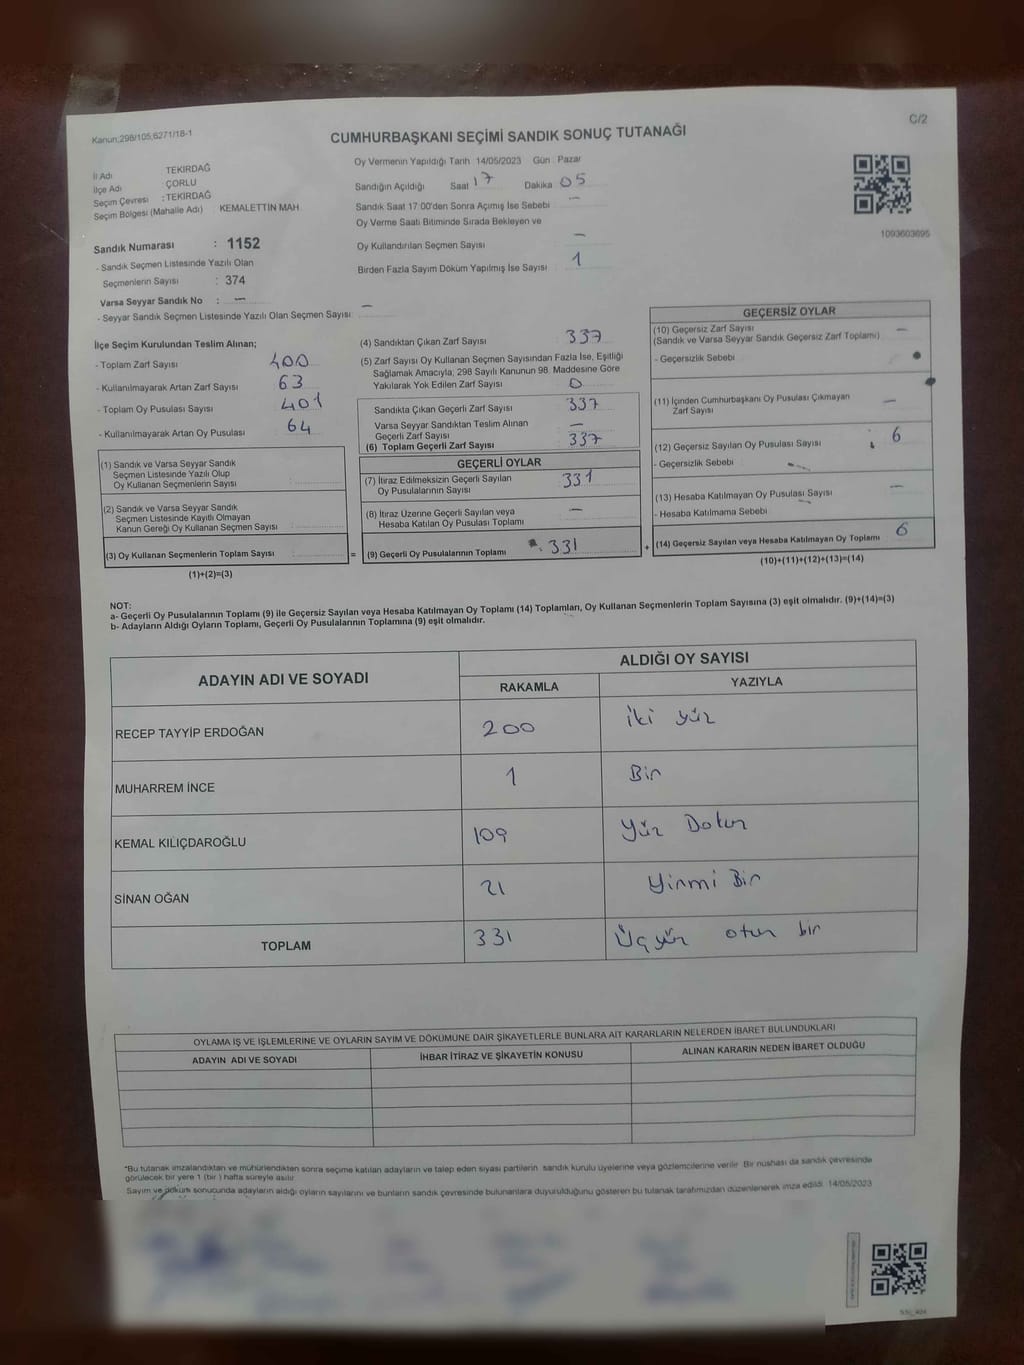 Kanun;298/105,6271/18-1
C/2
CUMHURBAŞKANI SEÇİMİ SANDIK SONUÇ TUTANAĞI
İl Adı : TEKİRDAĞ
İlçe Adı : ÇORLU
Seçim Çevresi : TEKİRDAĞ
Seçim Bölgesi (Mahalle Adı) KEMALETTİN MAH.
Sandık Numarası : 1152
- Sandık Seçmen Listesinde Yazılı Olan
Seçmenlerin Sayısı : 374
Varsa Seyyar Sandık No : —
- Seyyar Sandık Seçmen Listesinde Yazılı Olan Seçmen Sayısı: —
Oy Vermenin Yapıldığı Tarih 14/05/2023 Gün : Pazar
Sandığın Açıldığı Saat 17 Dakika 05
Sandık Saat 17:00'den Sonra Açımış İse Sebebi —
Oy Verme Saati Bitiminde Sırada Bekleyen ve
Oy Kullandırılan Seçmen Sayısı —
Birden Fazla Sayım Döküm Yapılmış İse Sayısı 1
1093603695
İlçe Seçim Kurulundan Teslim Alınan;
- Toplam Zarf Sayısı : 400
- Kullanılmayarak Artan Zarf Sayısı : 63
- Toplam Oy Pusulası Sayısı : 401
- Kullanılmayarak Artan Oy Pusulası : 64
(1) Sandık ve Varsa Seyyar Sandık
Seçmen Listesinde Yazılı Olup
Oy Kullanan Seçmenlerin Sayısı :
(2) Sandık ve Varsa Seyyar Sandık
Seçmen Listesinde Kayıtlı Olmayan
Kanun Gereği Oy Kullanan Seçmen Sayısı :
(3) Oy Kullanan Seçmenlerin Toplam Sayısı :
(1)+(2)=(3)
(4) Sandıktan Çıkan Zarf Sayısı 337
(5) Zarf Sayısı Oy Kullanan Seçmen Sayısından Fazla İse, Eşitliği
Sağlamak Amacıyla, 298 Sayılı Kanunun 98. Maddesine Göre
Yakılarak Yok Edilen Zarf Sayısı 0
Sandıkta Çıkan Geçerli Zarf Sayısı 337
Varsa Seyyar Sandıktan Teslim Alınan
Geçerli Zarf Sayısı —
(6) Toplam Geçerli Zarf Sayısı 337
GEÇERLİ OYLAR
(7) İtiraz Edilmeksizin Geçerli Sayılan
Oy Pusulalarının Sayısı 331
(8) İtiraz Üzerine Geçerli Sayılan veya
Hesaba Katılan Oy Pusulası Toplamı —
= (9) Geçerli Oy Pusulalarının Toplamı : 331
GEÇERSİZ OYLAR
(10) Geçersiz Zarf Sayısı —
(Sandık ve Varsa Seyyar Sandık Geçersiz Zarf Toplamı)
- Geçersizlik Sebebi
(11) İçinden Cumhurbaşkanı Oy Pusulası Çıkmayan
Zarf Sayısı —
(12) Geçersiz Sayılan Oy Pusulası Sayısı : 6
- Geçersizlik Sebebi
(13) Hesaba Katılmayan Oy Pusulası Sayısı —
- Hesaba Katılmama Sebebi
+ (14) Geçersiz Sayılan veya Hesaba Katılmayan Oy Toplamı 6
(10)+(11)+(12)+(13)=(14)
NOT:
a- Geçerli Oy Pusulalarının Toplamı (9) ile Geçersiz Sayılan veya Hesaba Katılmayan Oy Toplamı (14) Toplamları, Oy Kullanan Seçmenlerin Toplam Sayısına (3) eşit olmalıdır. (9)+(14)=(3)
b- Adayların Aldığı Oyların Toplamı, Geçerli Oy Pusulalarının Toplamına (9) eşit olmalıdır.
ADAYIN ADI VE SOYADI ALDIĞI OY SAYISI
RAKAMLA YAZIYLA
RECEP TAYYİP ERDOĞAN 200 iki yüz
MUHARREM İNCE 1 Bir
KEMAL KILIÇDAROĞLU 109 Yüz Dokuz
SİNAN OĞAN 21 Yirmi Bir
TOPLAM 331 Üçyüz otuz bir
OYLAMA İŞ VE İŞLEMLERİNE VE OYLARIN SAYIM VE DÖKÜMÜNE DAİR ŞİKAYETLERLE BUNLARA AİT KARARLARIN NELERDEN İBARET BULUNDUKLARI
ADAYIN ADI VE SOYADI İHBAR İTİRAZ VE ŞİKAYETİN KONUSU ALINAN KARARIN NEDEN İBARET OLDUĞU
*Bu tutanak imzalandıktan ve mühürlendikten sonra seçime katılan adayların ve talep eden siyasi partilerin sandık kurulu üyelerine veya gözlemcilerine verilir. Bir nüshası da sandık çevresinde
görülecek bir yere 1 (bir) hafta süreyle asılır.
Sayım ve döküm sonucunda adayların aldığı oyların sayılarını ve bunların sandık çevresinde bulunanlara duyurulduğunu gösteren bu tutanak tarafımızdan düzenlenerek imza edildi. 14/05/2023